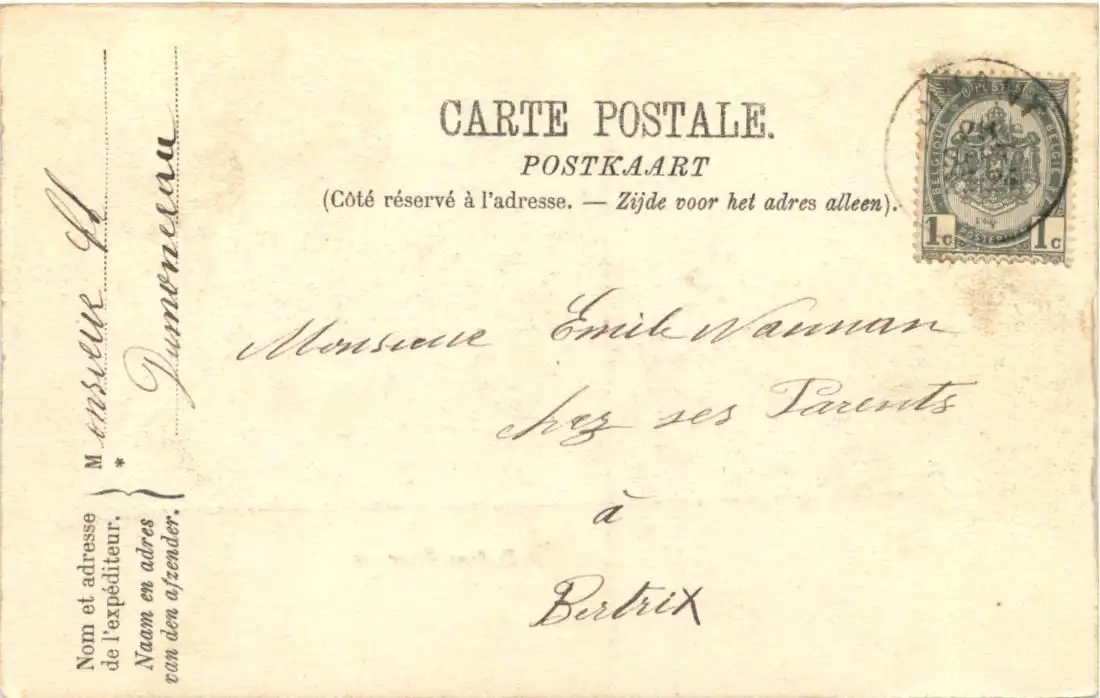 CARTE POSTALE.
POSTKAART
(Côté réservé à l'adresse. — Zijde voor het adres alleen).
POSTES
BELGIQUE
BELGIË
1c 1c
Monsieur Emile
chez ses Parents
à
Bertrix
Nom et adresse
de l'expéditeur.
Naam en adres
van den afzender.
Monsieur
*
Dumonceau